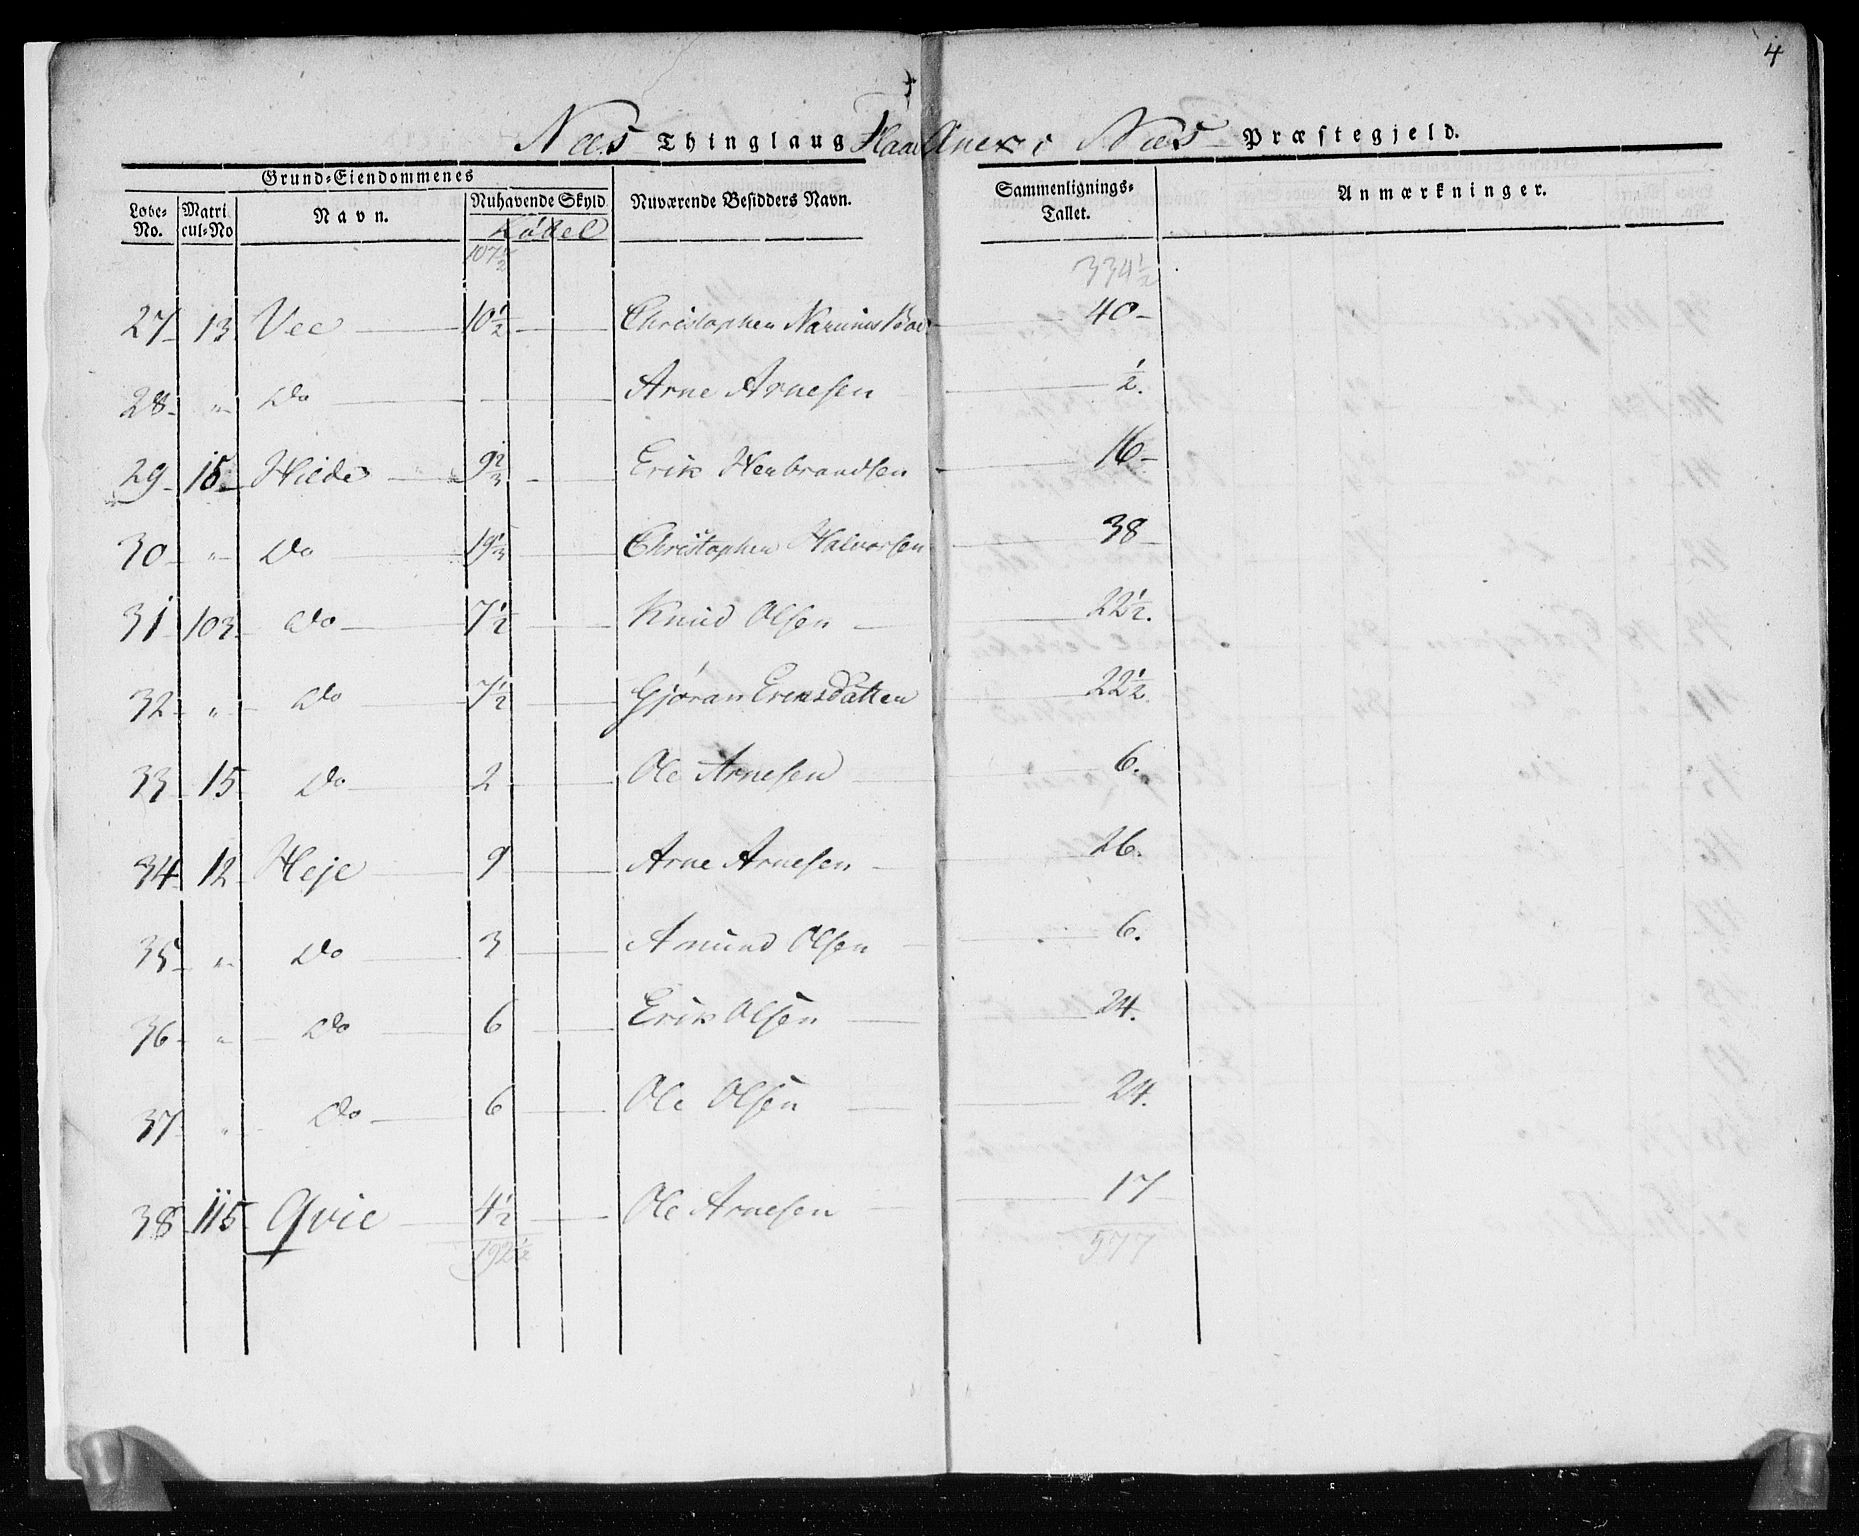 4
Næs Thinglaug Flaa Anex i Næs Præstegjeld.
Grund-Eiendommenes
Løbe-No. Matricul-No Navn. Nuhavende Skyld Nuværende Besidders Navn. Sammenlignings-Tallet. Anmærkninger.
107½ 334½
27 13 Vee 10½ Christopher 40
28 " Do Arne Arnesen ½.
29 15 Hilde 9⅔ Erik Herbrandsen 16
30 " Do 19⅓ Christopher Halvorsen 38
31 103 Do 7½ Knud Olsen 22½.
32 " Do 7½ Gjøran Eriksdatter 22½.
33 15 Do 2 Ole Arnesen 6.
34 12 Heje 9 Arne Arnesen 26.
35 " Do 3 Amund Olsen 6.
36 " Do 6 Erik Olsen 24.
37 " Do 6 Ole Olsen 24.
38 115 Qvie 4½ Ole Arnesen 17
577